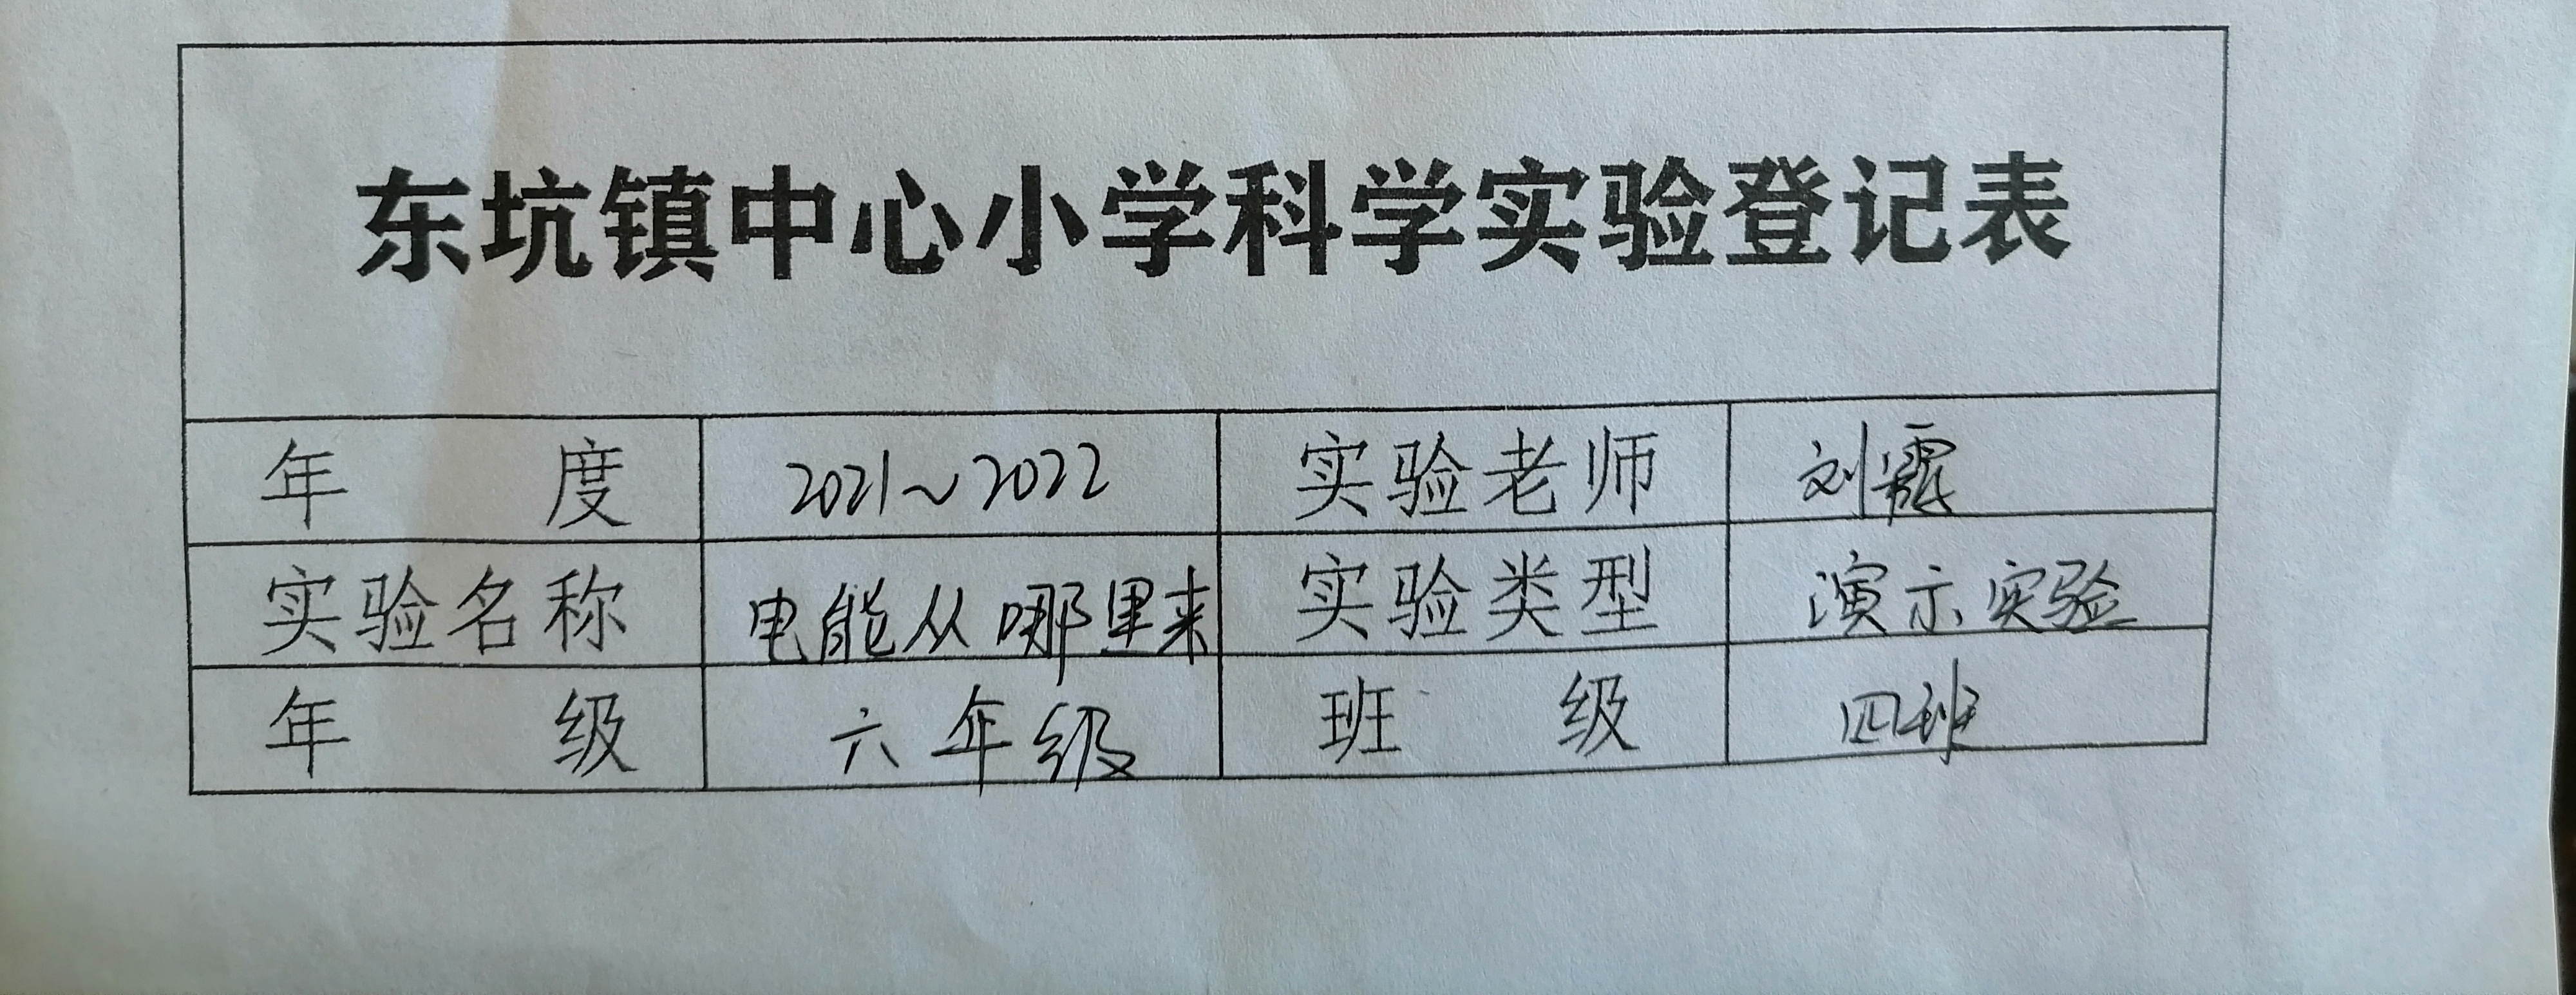 东坑镇中心小学科学实验登记表
年 度 2021~2022 实验老师 刘
实验名称 电能从哪里来 实验类型 演示实验
年 级 六年级 班 级 四班